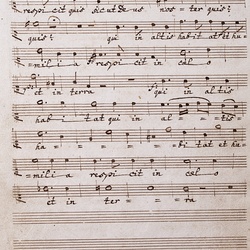 respicit quis sicut de us noster quis?
quis? qui in altis habit at et hu=
=mili a respicit in celo
et in terra qui in altis
habi tat qui in al = = tis=
ha = = = bi tat et hu=
mili a respicit in celo
et in ter = = ra